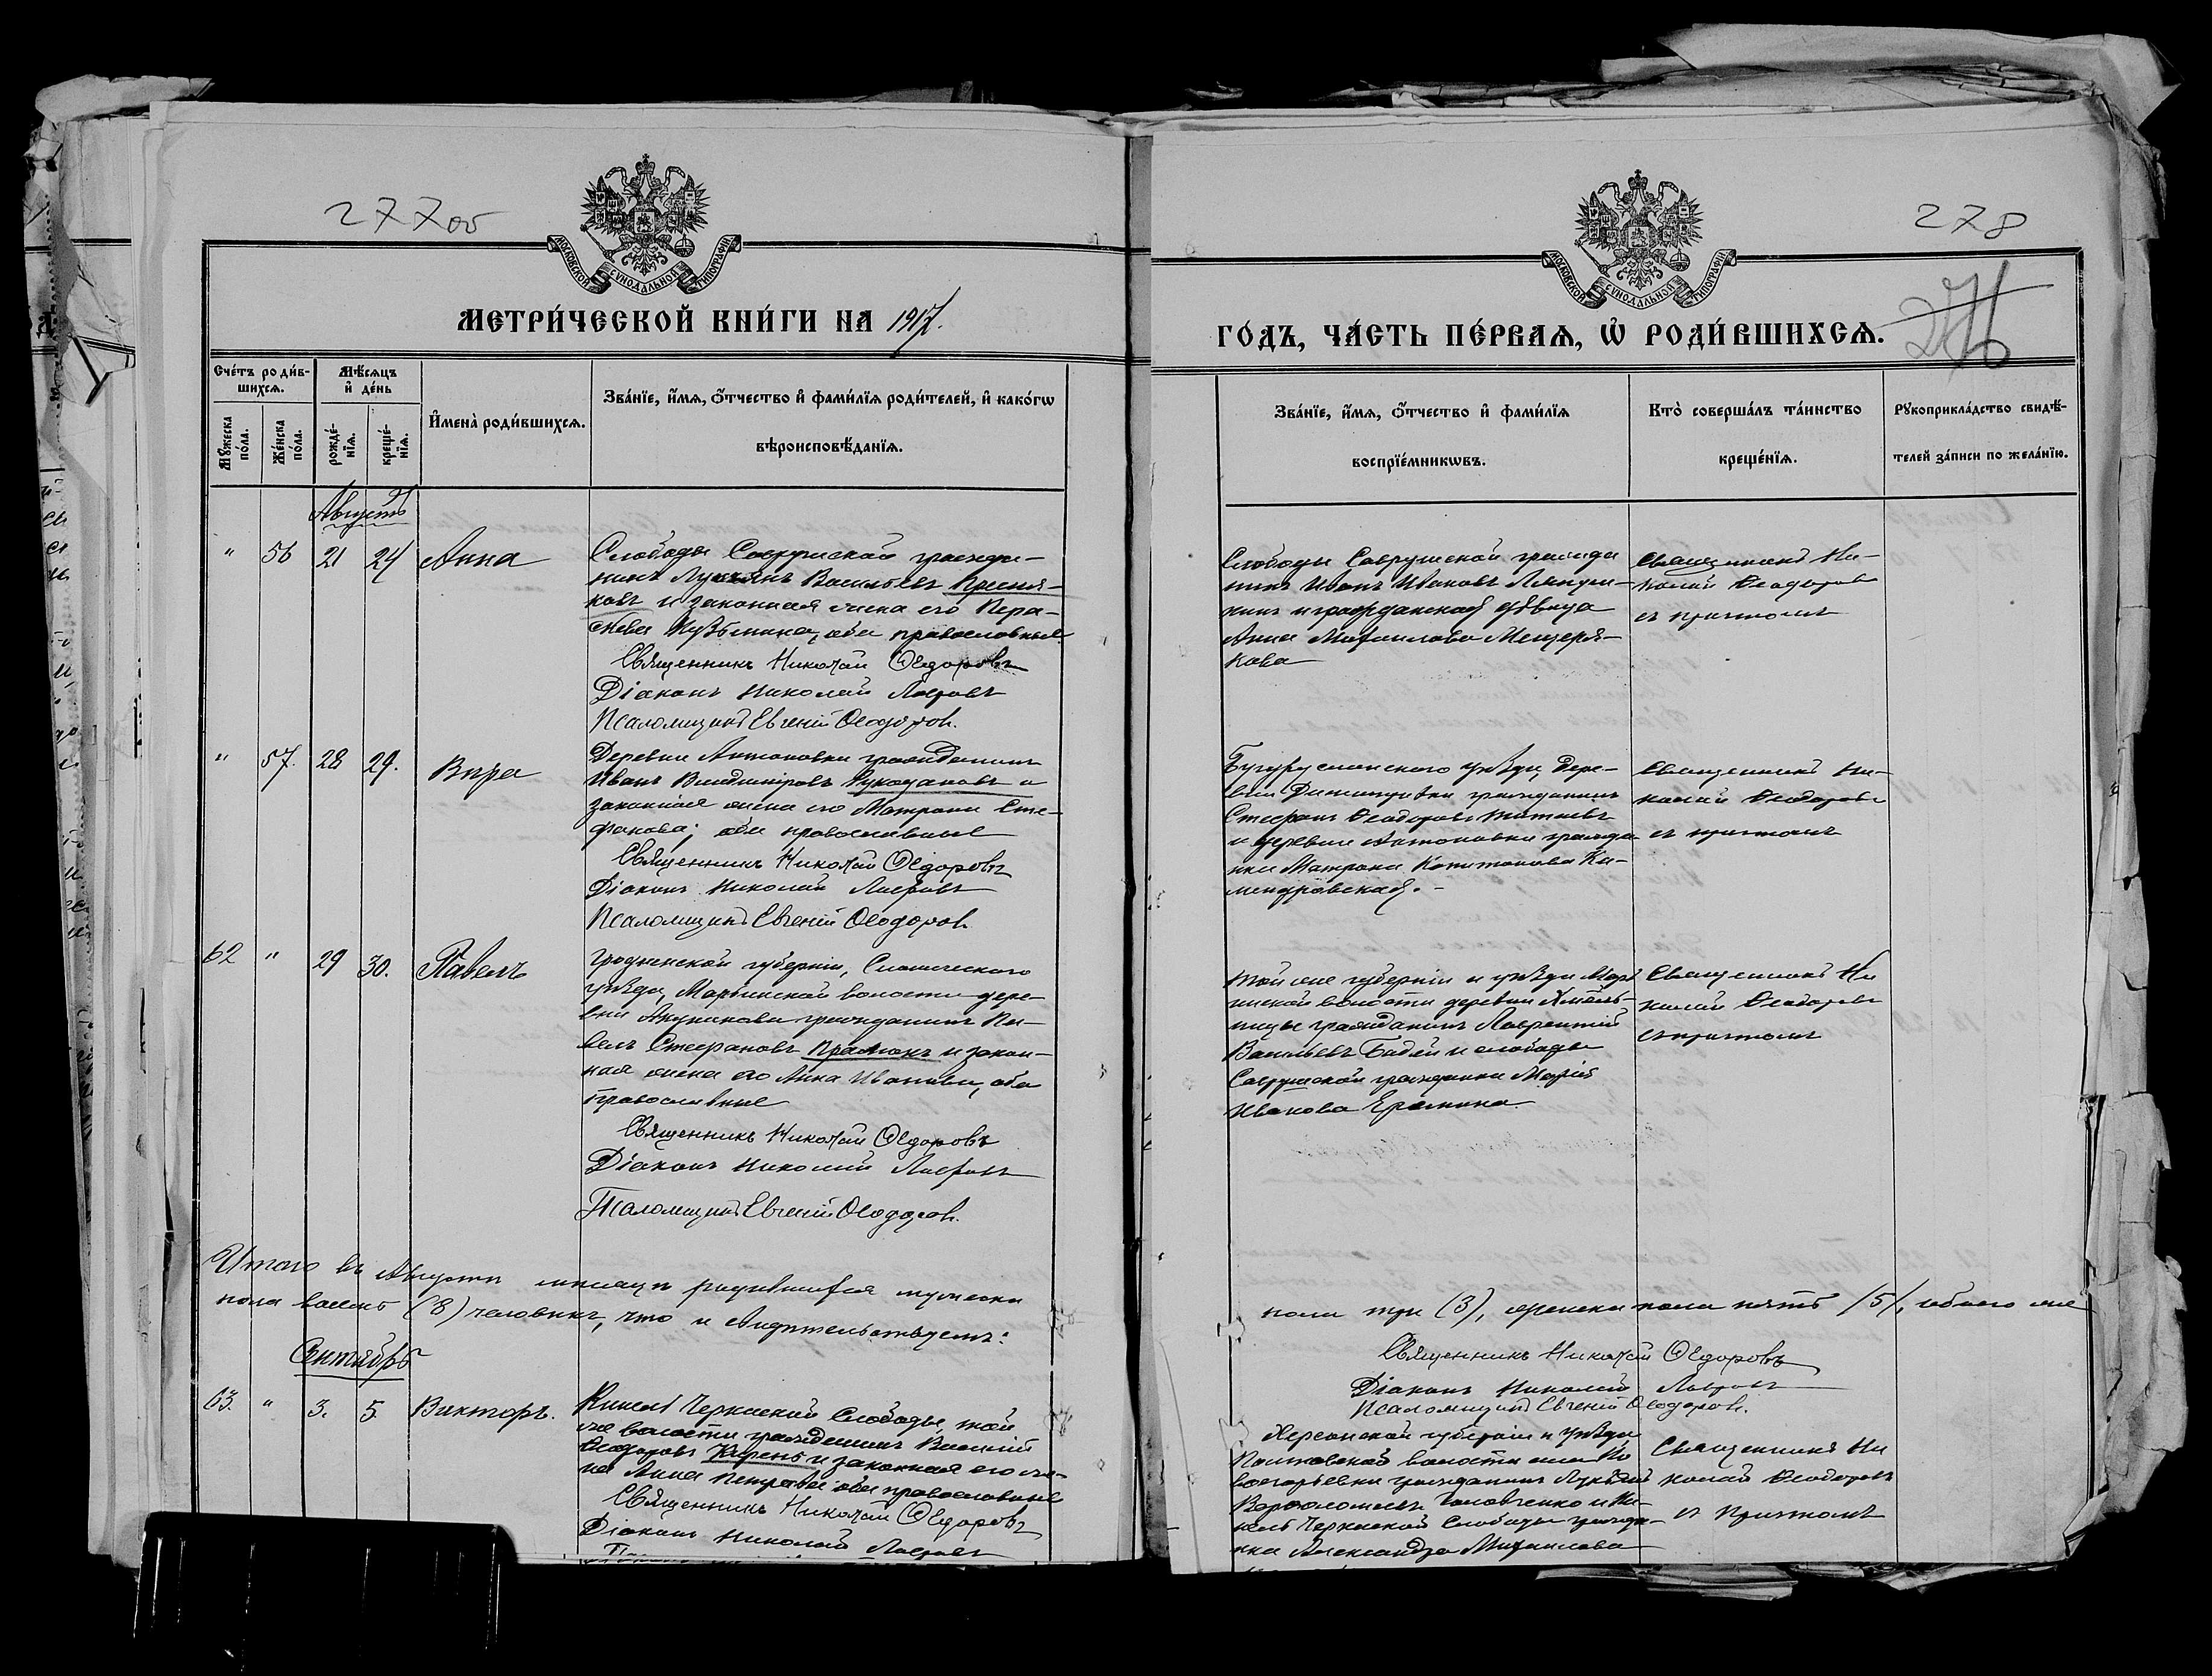 277об
МОСКОВСКОЙ СѴНОДАЛЬНОЙ ТИПОГРАФІИ
МЕТРИ́ЧЕСКОЙ КНИ́ГИ НА 1917.
Сче́тъ роди́в-
шихсѧ.
Мѣ́сѧцъ
и҆ де́нь
Мꙋ́жеска
по́ла.
Же́нска
по́ла.
рожде́-
нїѧ.
креще́-
нїѧ.
И҆мена̀ роди́вшихсѧ.
Зва́нїе, и҆́мѧ, ѻ҆́тчество и҆ фами́лїѧ роди́телей, и҆ како́гѡ
вѣроисповѣ́данїѧ.
Августъ
" 56 21 24 Анна
Слободы Саврушской гражда-
нинъ Лукьянъ Васильевъ Пресня-
ковъ и законная жена его Пара-
скева Кузьмина, оба православные
Священникъ Николай Ѳеодоровъ
Діаконъ Николай Лавровъ
Псаломщикъ Евгеній Ѳеодоров.
" 57. 28 29. Вѣра
Деревни Антоновки гражданинъ
Иванъ Владиміровъ и
законная жена его Матрона Сте-
фанова; оба православные
Священникъ Николай Ѳеодоровъ
Діаконъ Николай Лавровъ
Псаломщикъ Евгеній Ѳеодоров.
62 " 29 30. Павелъ
Гродненской губерніи, Слонимского
уѣзда, волости дере-
вни гражданинъ Па-
велъ Стефановъ и закон-
ная жена его Анна Иванова, оба
православные
Священникъ Николай Ѳеодоровъ
Діаконъ Николай Лавровъ
Псаломщикъ Евгеній Ѳеодоров.
Итого въ Августѣ мѣсяцѣ родившихся мужска
пола восемь (8) человѣкъ, что и свидѣтельствуемъ:
Сентябрь
63. " 3. 5. Викторъ.
Кинель Черкасской Слободы, той
же волости гражданинъ Василій
Ѳеодоровъ и законная его же-
на Анна Петрова оба православные
Священникъ Николай Ѳеодоровъ
Діаконъ Николай Лавровъ
278
МОСКОВСКОЙ СѴНОДАЛЬНОЙ ТИПОГРАФІИ
ГО́ДЪ, ЧА́СТЬ ПЕ́РВАѦ, Ѡ҆ РОДИ́ВШИХСѦ.
Зва́нїе, и҆́мѧ, ѻ҆́тчество и҆ фами́лїѧ
воспрїе́мникѡвъ.
Кто̀ соверша́лъ та́инство
креще́нїѧ.
Рꙋкоприкла́дство свидѣ́-
телей за́писи по жела́нїю.
Слободы Саврушской гражда
нинъ Иванъ Ивановъ
и гражданская дѣвица
Анна Михаилова Мещеря-
кова
Священникъ Ни-
колай Ѳеодоровъ
съ причтомъ
Бугурусланского уѣзда, дере-
вни гражданинъ
Стефанъ Ѳеодоровъ
и деревни Антоновки гражда
нка Матрона
Священникъ Ни-
колай Ѳеодоровъ
съ причтомъ
Той же губерніи и уѣзда
волости деревни
гражданинъ Лаврентій
Васильевъ и слободы
Саврушской гражданка Марія
Иванова Еремина.
Священникъ Ни
колай Ѳеодоровъ
съ причтомъ
пола три (3), женска пола пять (5), обоего же
Священникъ Николай Ѳеодоровъ
Діаконъ Николай Лавровъ
Псаломщикъ Евгеній Ѳеодоров.
Херсонской губерніи и уѣзда
волости
гражданинъ
Варѳоломеевъ Головченко и Ки-
нель Черкасской Слободы гражда-
нка Александра Михаилова
Священникъ Ни
колай Ѳеодоровъ
съ причтомъ